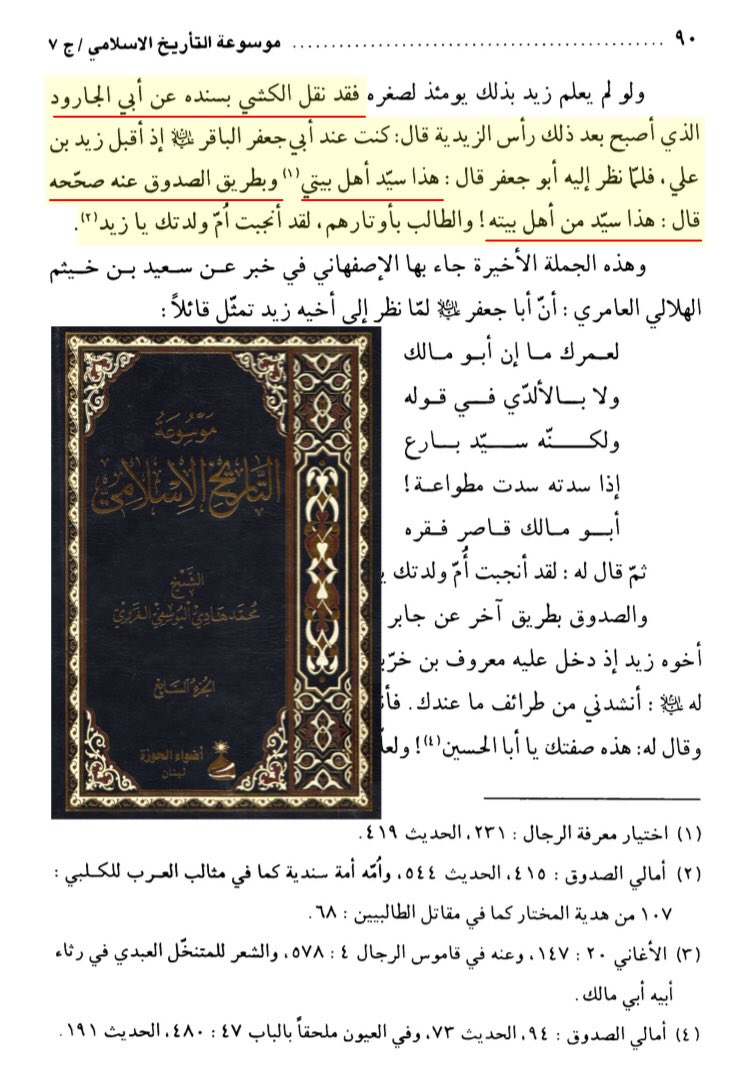 ٩٠ موسوعة التأريخ الاسلامي / ج ٧
ولو لم يعلم زيد بذلك يومئذ لصغره فقد نقل الكشي بسنده عن أبي الجارود
الذي أصبح بعد ذلك رأس الزيدية قال: كنت عند أبي جعفر الباقر عليه السلام إذ أقبل زيد بن
علي، فلمّا نظر إليه أبو جعفر قال: هذا سيّد أهل بيتي(١) وبطريق الصدوق عنه صحّحه
قال: هذا سيّد من أهل بيته! والطالب بأوتارهم، لقد أنجبت أمّ ولدتك يا زيد(٢).
وهذه الجملة الأخيرة جاء بها الإصفهاني في خبر عن سعيد بن خيثم
الهلالي العامري: أنّ أبا جعفر عليه السلام لمّا نظر إلى أخيه زيد تمثّل قائلاً:
لعمرك ما إن أبو مالك
ولا بالألدّي في قوله
ولكنّه سيّد بارع
إذا سدته سدت مطواعة!
أبو مالك قاصر فقره
ثمّ قال له: لقد أنجبت أُمّ ولدتك
والصدوق بطريق آخر عن جابر
أخوه زيد إذ دخل عليه معروف بن
له عليه السلام: أنشدني من طرائف ما عندك.
وقال له: هذه صفتك يا أبا الحسين(٤)!
موسوعة
التاريخ الإسلامي
الشيخ
محمد هادي اليوسفي الغروي
الجزء السابع
أضواء الحوزة
لبنان
(١) اختيار معرفة الرجال: ٢٣١، الحديث ٤١٩.
(٢) أمالي الصدوق: ٤١٥، الحديث ٥٤٤، وأمّه أمة سندية كما في مثالب العرب للكلبي:
١٠٧ من هدية المختار كما في مقاتل الطالبيين: ٦٨.
(٣) الأغاني ٢٠: ١٤٧، وعنه في قاموس الرجال ٤: ٥٧٨، والشعر للمتنخّل العبدي في رثاء
أبيه أبي مالك.
(٤) أمالي الصدوق: ٩٤، الحديث ٧٣، وفي العيون ملحقاً بالباب ٤٧: ٤٨٠، الحديث ١٩١.